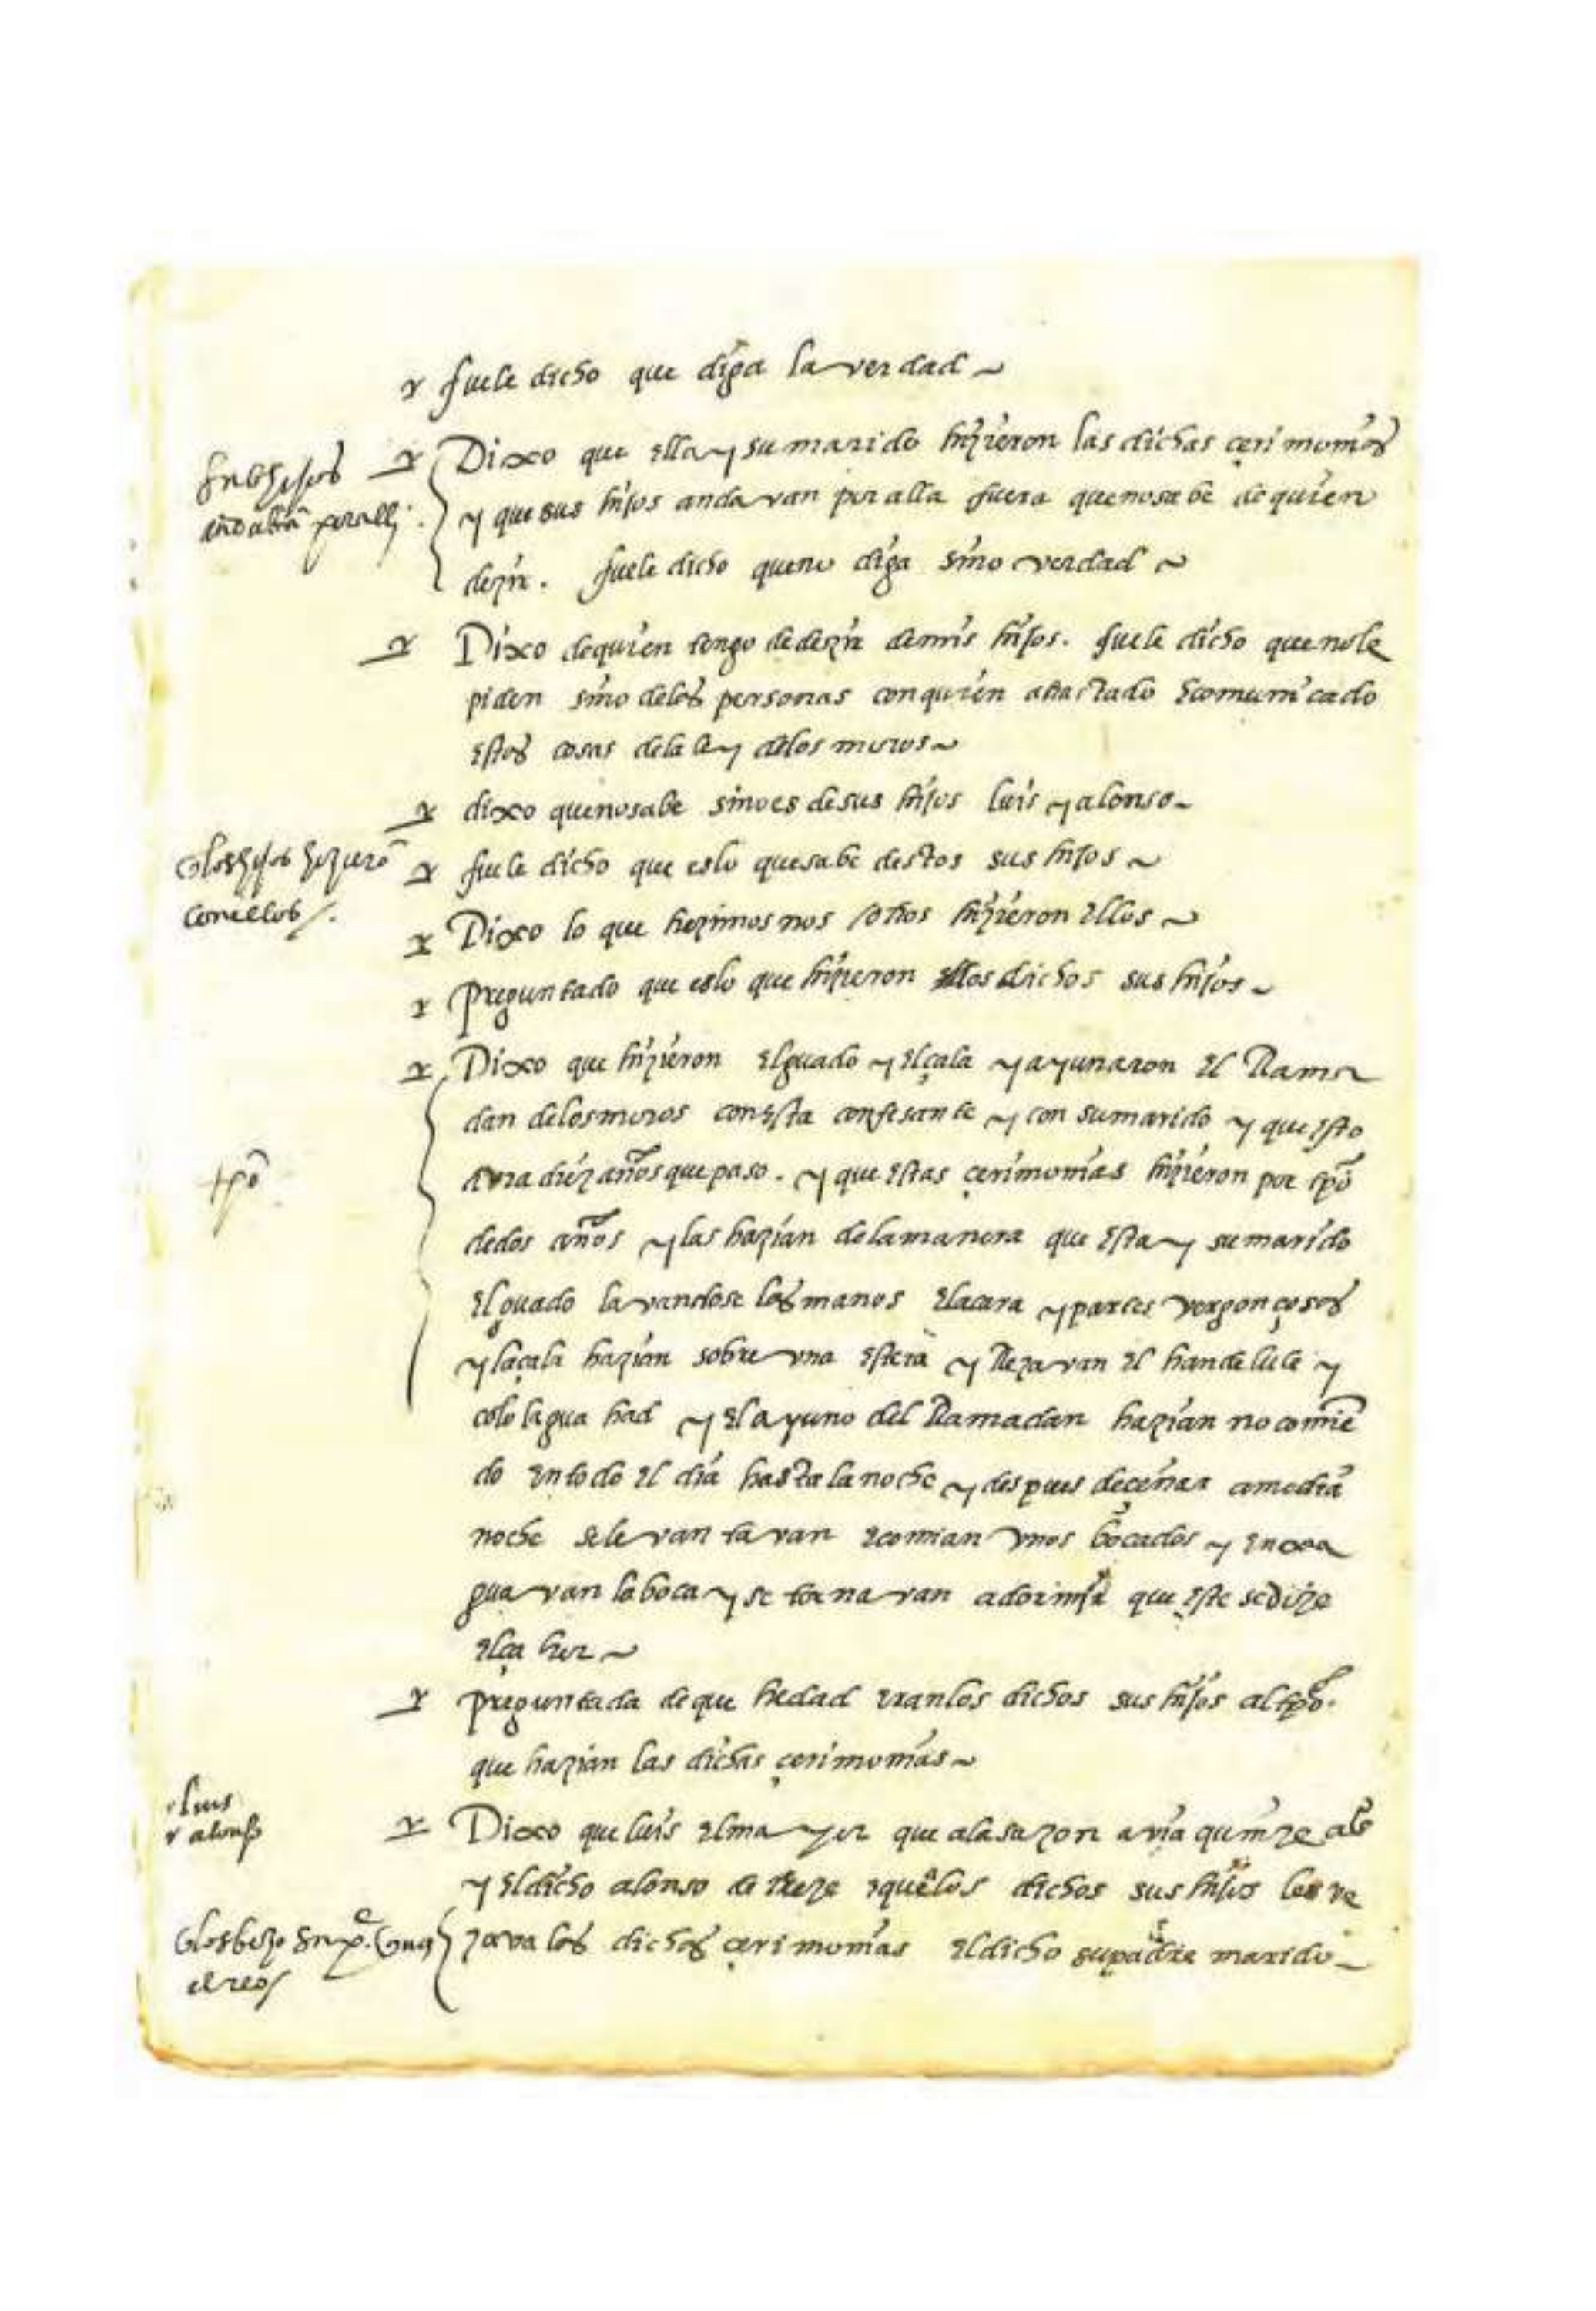 r fuele dicho que diga la verdad ~
r Dixo que ella y su marido hizieron las dichas cerimonias
y que sus hijos andavan por alla fuera que no sabe de quien
dezir. fuele dicho que no diga sino verdad ~
r Dixo de quien tengo de dezir de mis hijos. fuele dicho que no le
piden sino de las personas con quien a tractado e comunicado
estas cosas de la ley de los moros ~
r dixo que no sabe sino es de sus hijos luis y alonso ~
los hijos hizierō
con ellos /.
r fuele dicho que es lo que sabe destos sus hijos ~
r Dixo lo que hezimos nosotros hizieron ellos ~
r Preguntado que es lo que hizieron los dichos sus hijos ~
r Dixo que hizieron el guado y el çala y ayunaron el Rama
dan de los moros con esta confesante y con su marido y que esto
avra diez años que paso. y que estas çerimonias hizieron por tpō
tpō
de dos años y las hazian de la manera que esta y su marido
el guado lavandose las manos e la cara y partes vergonçosas
y la çala hazian sobre una estera y Rezavan el handelule y
colo lagua had y el ayuno del Ramadan hazian no comiē
do en todo el dia hasta la noche y despues de çenar a media
noche se levantavan e comian unos bocados y enxa
guavan la boca y se tornavan a dormir que este se dize
el ça hor ~
r preguntada de que hedad eran los dichos sus hijos al tpō.
que hazian las dichas çerimonias ~
luis
r alonso
r Dixo que luis el mayor que a la sazon avia quinze años
y el dicho alonso de treze e que a los dichos sus hijos les ve
zava las dichas çerimonias el dicho su padre marido ~